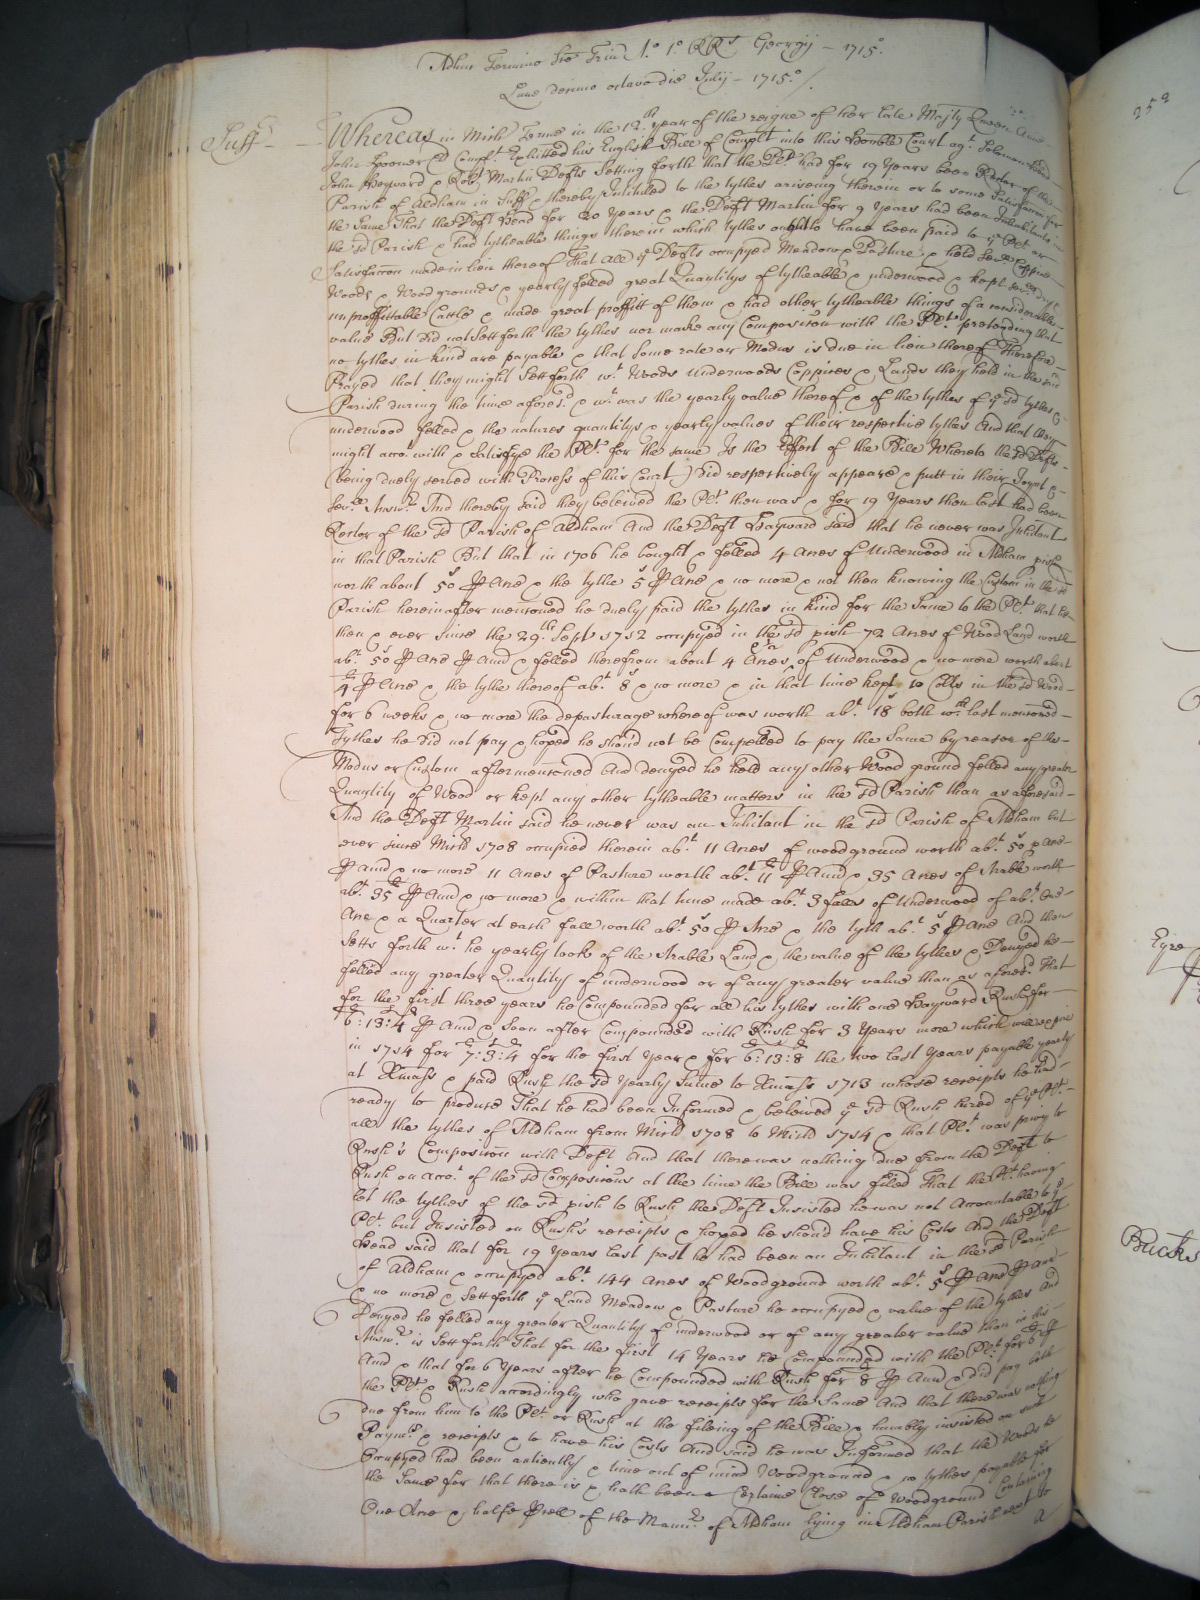 Adhuc Termino Sce Trin 1.o 1.o RRs Georgij - 1715.o
Lune decimo octavo die July - 1715.o
Suff
Whereas in Mich Terme in the 12.th year of the reigne of her late Majty Queen Anne
John Cler Complt Exhitted his English Bill of Complt into this Honble Court agt Solomon
John Hayward & Robt Martin Defts Setting forth that the Plt had for 19 Years been Rector of the
Parish of Aldham in Suff & thereby Intituled to the tythes ariseing therein or to some Satisfaccon for
the Same That the Deft Head for 20 Years & the Deft Martin for 9 Years had been Inhabitants in
the sd Parish & had tytheable things therein which tythes ought to have been paid to ye Plt or
Satisfaccon made in lieu thereof That all ye Defts occupyed Meadow & Pasture & held Sevll Coppices
Woods & Woodgrounds & yearly felled great Quantitys of tytheable underwood & kept
unproffittable Cattle & made great proffitt of them & had other tytheable things of a considerable
value But did not Sett forth the tythes nor make any Composicon with the Plt pretending that
no tythes in kind are payable & that some rate or Modus is due in lieu thereof Therefore
Prayed that they might Sett forth wt Woods Underwoods Coppices & Lands they held in the said
Parish during the time aforesd & wt was the yearly value thereof & of the tythes of ye sd tythes &
underwood felled & the natures quantitys & yearly values of their respective tythes And that they
might accot with & Satisfye the Plt for the same Is the Effect of the Bill Whereto the sd Defts
(being duely served with Process of this Court) did respectively appeare & putt in their Joynt &
Sevll Answrs And thereby said they beleived the Plt then was & for 19 Years then last had been
Rector of the sd Parish of Aldham And the Deft Hayward said that he never was Inhitant
in that Parish But that in 1706 he bought & felled 4 Acres of Underwood in Aldham pish
worth about 50s P Acre & the tythe 5s P Acre & no more & not then knowing the Custom in the sd
Parish hereinafter menconed he duely paid the tythes in kind for the same to the Plt that
then & ever since the 29.th Sept 1712 occupyed in the sd pish 72 Acres of Wood Land worth
abt 50s P Acre P Annu & felled therefrom about 4 Acres of Underwood & no more worth abert
4li P Acre & the tythe thereof abt 8s & no more & in that time kept 10 Colts in the sd Wood
for 6 weeks & no more the depasturage whereof was worth abt 18s both wch last menconed
Tythes he did not pay & hoped he shoud not be Compelled to pay the same by reason of the
Modus or Custom aftermenconed And denyed he held any other Wood ground felled any greater
Quantity of Wood or kept any other tytheable matters in the sd Parish than as aforesaid
And the Deft Martin said he never was an Inhitant in the sd Parish of Aldham but
ever since Mich 1708 occupied therein abt 11 Acres of woodground worth abt 50s p Acre
P Annu & no more 11 Acres of Pasture worth abt 11li P Annu & 35 Acres of Arable worth
abt 35li P Annu & no more & within that time made abt 3 falls of Underwood of abt One
Acre & a Quarter at each fall worth abt 50s P Acre & the tyth abt 5s P Acre And then
Setts forth wt he yearly took of the Arable Land & the value of the tythes & Denyed he
felled any greater Quantity of underwood or of any greater value than as aforesd That
for the first three years he Compounded for all his tythes with one Hayward Rush for
6li:13s:4d P Annu & Soon after Compounded with Rush for 3 Years more which will expire
in 1714 for 7li:3s:4d for the first Year & for 6li:13s:8d the two last Years payable yearly
at Xmass & paid Rush the sd Yearly Sums to Xmass 1713 whose receipts he had
ready to produce That he had been Informed & beleived ye sd Rush hired of ye Plt
all the tythes of Aldham from Mich 1708 to Mich 1714 & that Plt was privy to
Rush's Composicon with Deft And that there was nothing due from the Deft to
Rush on accot of the sd Composicons at the time the Bill was filed That the Plt having
let the tythes of the sd pish to Rush the Deft Insisted he was not Accountable to ye
Plt but Insisted on Rush's receipts & hoped he shoud have his Costs And the Deft
Head said that for 19 Years last past he had been an Inhitant in the sd Parish
of Aldham & occupyed abt 144 Acres of Woodground worth abt 5s P Acre P Annu
& no more & Sett forth ye Land Meadow & Pasture he occupyed & value of the tythes And
Denyed he felled any greater Quantity of underwood or of any greater value than in his
Answr is Sett forth That for the first 14 Years he Compounded with the Plt for P
Annu & that for 6 Years after he Compounded with Rush for 8li P Annu & did pay both
the Plt & Rush accordingly who gave receipts for the same And that there was nothing
due from him to the Plt or Rush at the fileing of the Bill & humbly insisted on such
Paymts & receipts & to have his Costs And said he was Informed that the Woods he
Occupyed had been antiently & time out of mind Woodground & no tythes payable for
the Same for that there is & hath been a Certaine Close of Woodground Containing
One Acre & halfe Pcell of the Mannr of Aldham lying in Aldham Parish next to
a
252
Eyre
Bucks